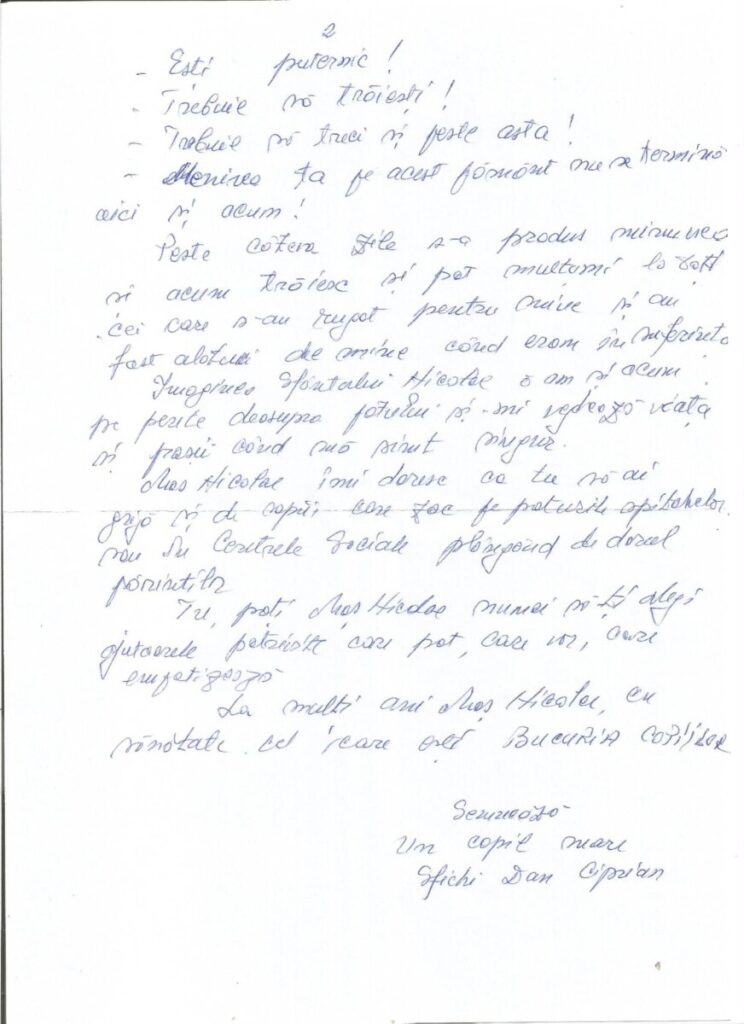 2
- Esti puternic !
- Trebuie să trăiesti !
- Trebuie să treci și peste asta !
- Menirea ta pe acest pământ nu se termină
aici și acum !
Peste câteva zile s-a produs minunea
și acum trăiesc și pot mulțumi la toți
cei care s-au rugat pentru mine și au
fost alături de mine când eram în suferință
Imaginea Sfântului Nicolae o am și acum
pe perete deasupra patului și-mi veghează viața
și pașii când mă simt singur.
Moș Nicolae îmi doresc ca tu să ai
grijă și de copiii care zac pe paturile spitalelor
sau în Centrele Sociale plângând de dorul
părinților
Tu, poți Moș Nicolae numai să ți alegi
ajutoarele potrivite care pot, care vor, care
empatizează
La multi ani Moș Nicolae, cu
sănătate cel care ești BUCURIA COPIILOR
Semnează
Un copil mare
Sfichi Dan Ciprian